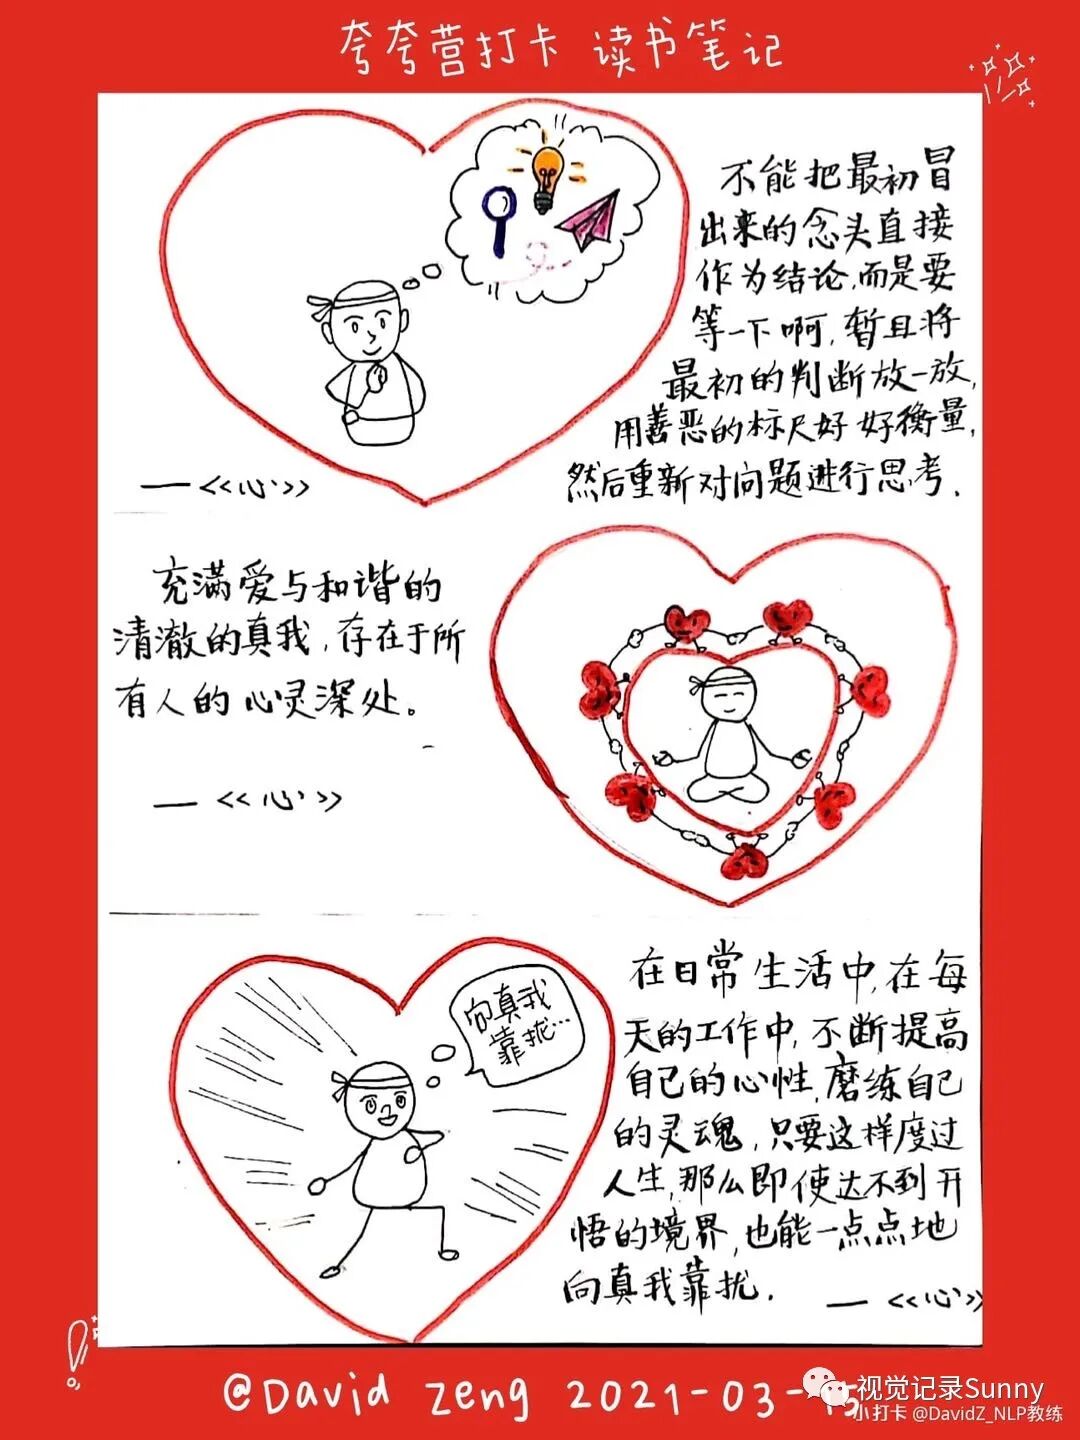 夸夸营打卡 读书笔记
不能把最初冒
出来的念头直接
作为结论,而是要
等一下啊,暂且将
最初的判断放一放,
用善恶的标尺好好衡量,
然后重新对问题进行思考.
—<<心>>
充满爱与和谐的
清澈的真我,存在于所
有人的心灵深处。
—<<心>>
向真我
靠扰...
在日常生活中,在每
天的工作中,不断提高
自己的心性,磨练自己
的灵魂,只要这样度过
人生,那么即使达不到开
悟的境界,也能一点点地
向真我靠扰.
—<<心>>
@David Zeng 2021-03-15
视觉记录Sunny
小打卡 @DavidZ_NLP教练